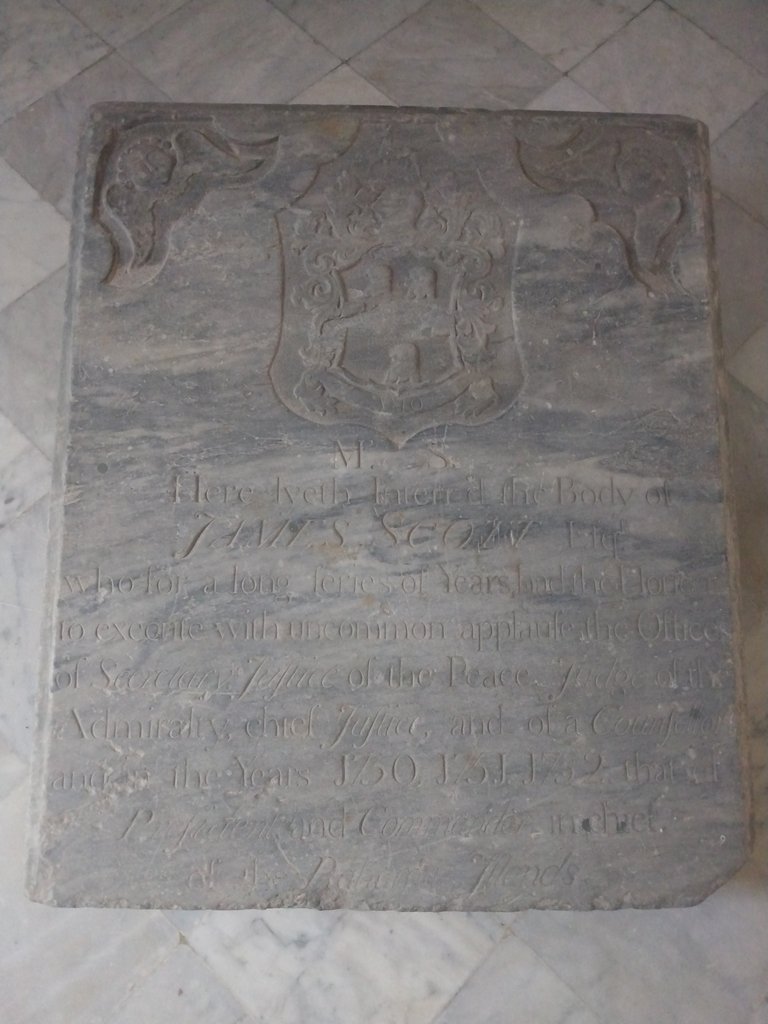 M. S.
Here lyeth Interr'd the Body of
JAMES SCOTT Esqr.
who for a long ſeries of Years had the Honour
to execute with uncommon applauſe the Offices
of Secretary, Juſtice of the Peace, Judge of the
Admiralty, chief Juſtice, and of a Counſellor
and in the Years 1730, 1731, 1732, that of
Preſident and Commander in chief
of the Bahama Iſlands